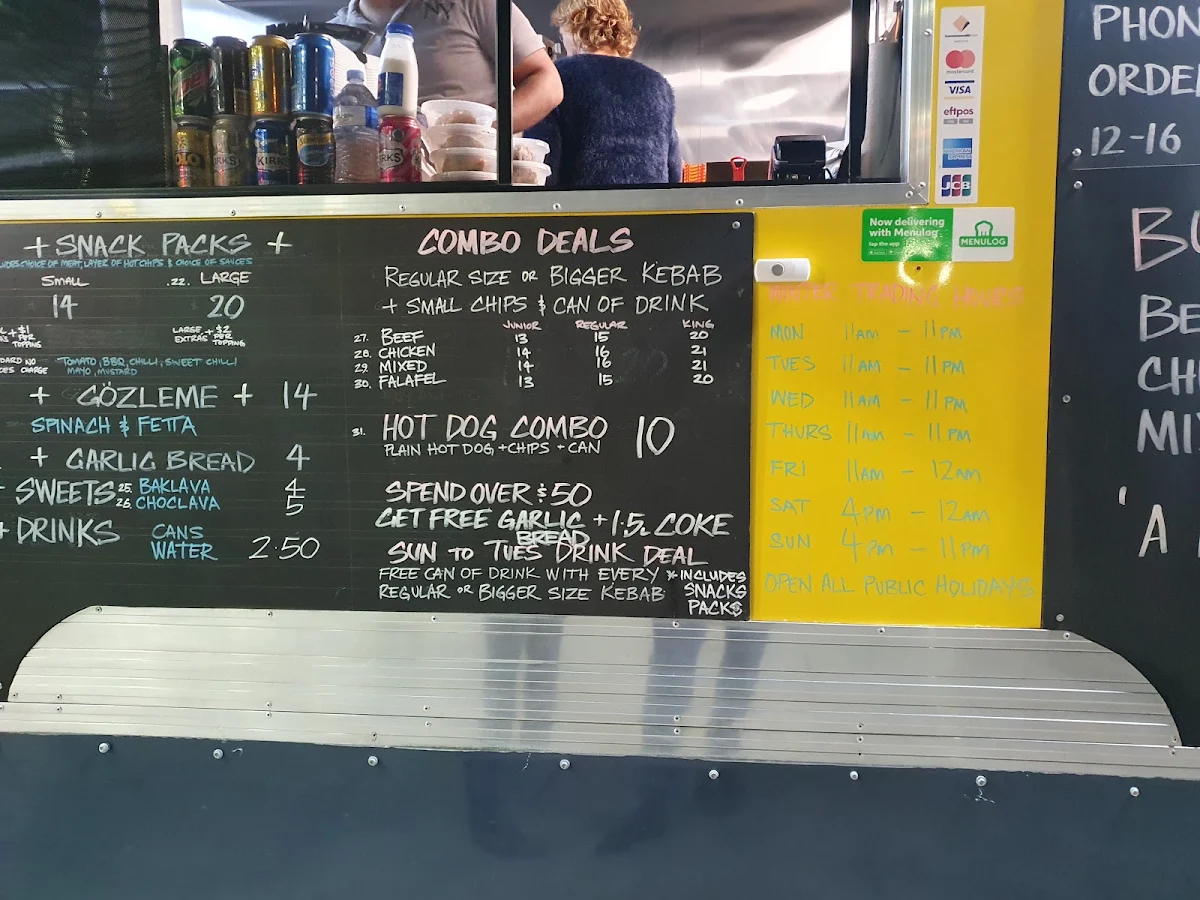 + SNACK PACKS +
CHOICE OF MEAT, LAYER OF HOT CHIPS & CHOICE OF SAUCES
SMALL .22. LARGE
14 20
+$1 PER TOPPING
LARGE EXTRAS +$2 PER TOPPING
NO CHARGE
TOMATO, BBQ, CHILLI, SWEET CHILLI
MAYO, MUSTARD
+ GÖZLEME + 14
SPINACH & FETTA
+ GARLIC BREAD 4
SWEETS 25. BAKLAVA 4
26. CHOCLAVA 5
+ DRINKS CANS
WATER 2.50
COMBO DEALS
REGULAR SIZE OR BIGGER KEBAB
+ SMALL CHIPS & CAN OF DRINK
JUNIOR REGULAR KING
27. BEEF 13 15 20
28. CHICKEN 14 16 21
29. MIXED 14 16 21
30. FALAFEL 13 15 20
31. HOT DOG COMBO 10
PLAIN HOT DOG + CHIPS + CAN
SPEND OVER $50
GET FREE GARLIC BREAD + 1.5L COKE
SUN TO TUES DRINK DEAL
FREE CAN OF DRINK WITH EVERY
REGULAR OR BIGGER SIZE KEBAB
* INCLUDES
SNACKS
PACKS
KIRKS
KIRKS
mastercard
VISA
eftpos
AMERICAN EXPRESS
JCB
Now delivering
with Menulog
tap the app
MENULOG
TRADING HOURS
MON 11AM - 11PM
TUES 11AM - 11PM
WED 11AM - 11PM
THURS 11AM - 11PM
FRI 11AM - 12AM
SAT 4PM - 12AM
SUN 4PM - 11PM
OPEN ALL PUBLIC HOLIDAYS
12-16
'A